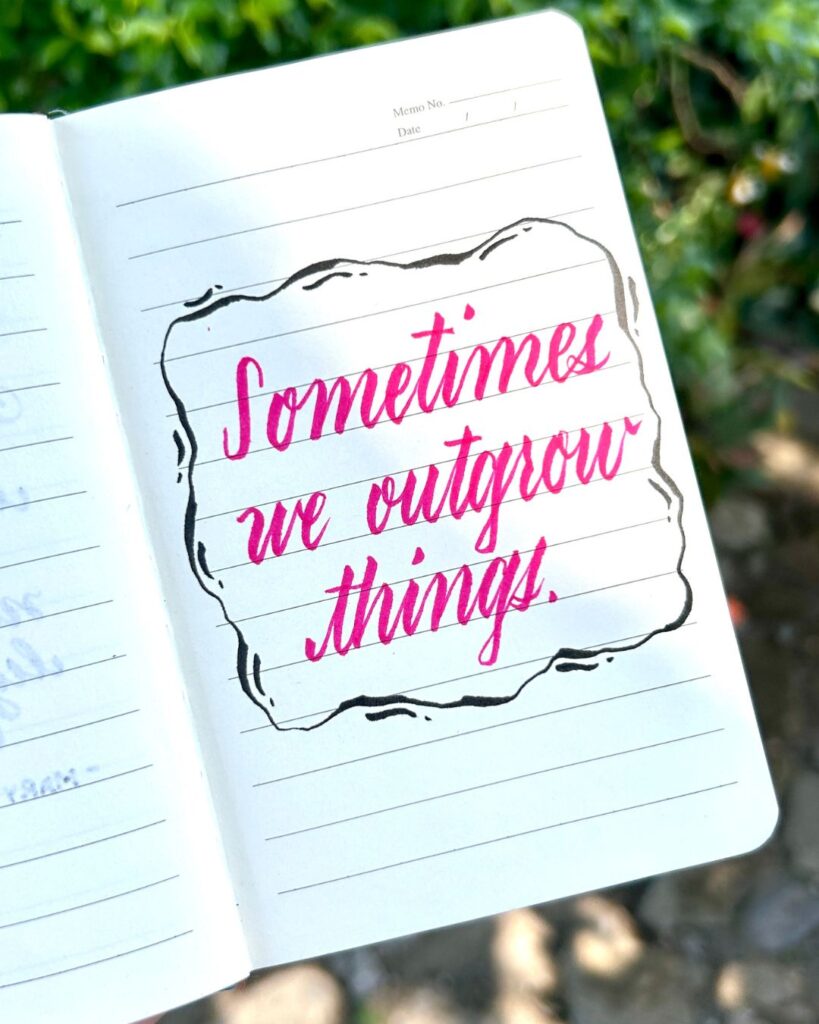 Memo No.
Date / /
Sometimes
we outgrow
things.